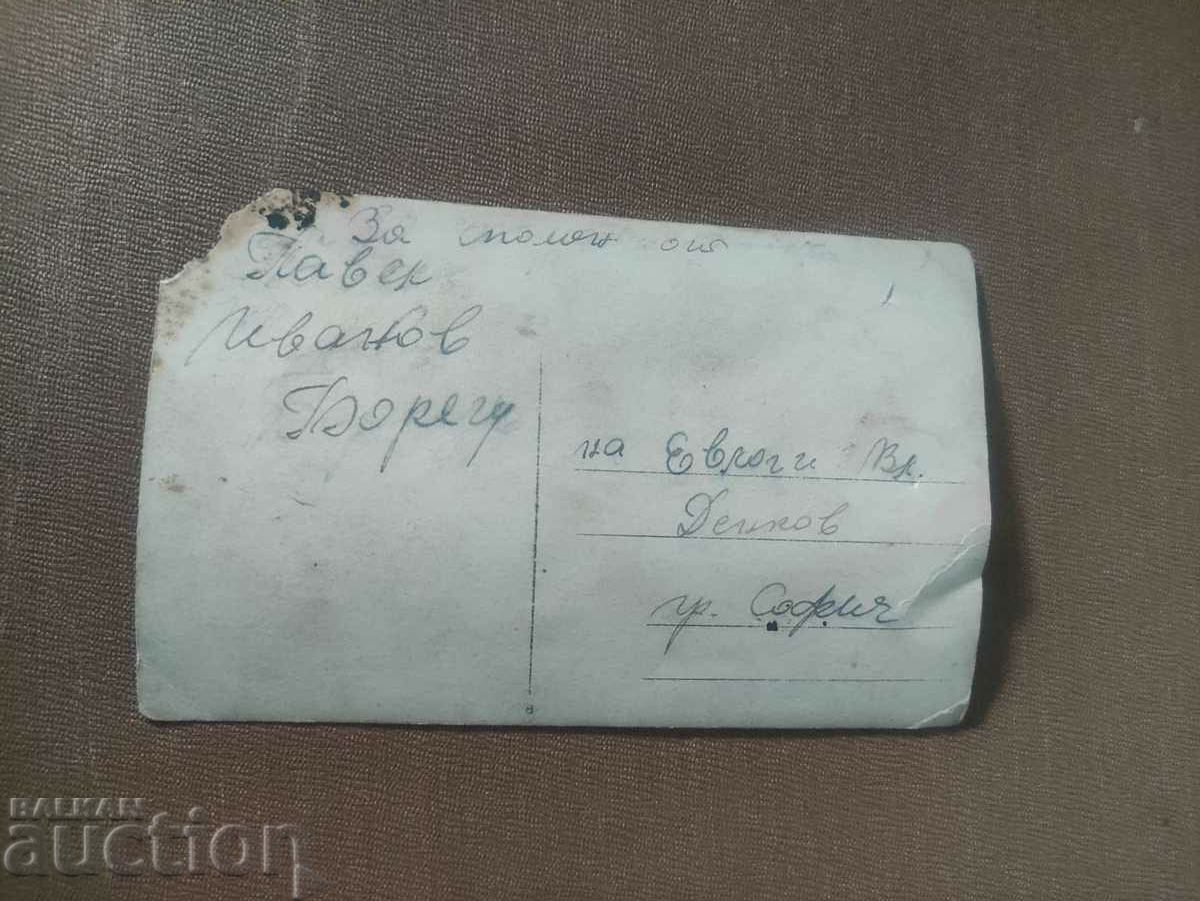 За спомен от
Павел
Иванов
на Евлоги Вл.
Денков
гр. София
BALKAN
auction